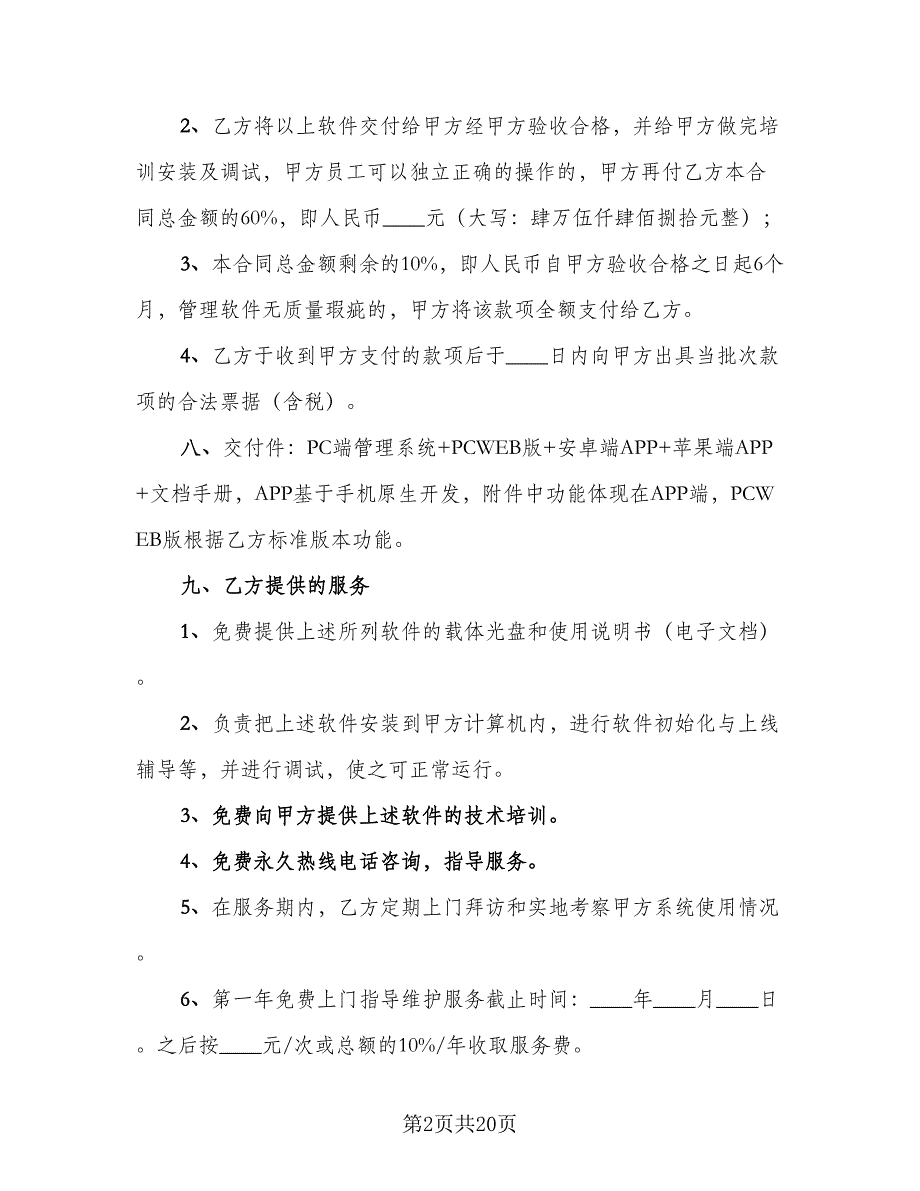 2、乙方将以上软件交付给甲方经甲方验收合格，并给甲方做完培
训安装及调试，甲方员工可以独立正确的操作的，甲方再付乙方本合
同总金额的60%，即人民币____元（大写：肆万伍仟肆佰捌拾元整）；
3、本合同总金额剩余的10%，即人民币自甲方验收合格之日起6个
月，管理软件无质量瑕疵的，甲方将该款项全额支付给乙方。
4、乙方于收到甲方支付的款项后于____日内向甲方出具当批次款
项的合法票据（含税）。
八、交付件：PC端管理系统+PCWEB版+安卓端APP+苹果端APP
+文档手册，APP基于手机原生开发，附件中功能体现在APP端，PCW
EB版根据乙方标准版本功能。
九、乙方提供的服务
1、免费提供上述所列软件的载体光盘和使用说明书（电子文档）
。
2、负责把上述软件安装到甲方计算机内，进行软件初始化与上线
辅导等，并进行调试，使之可正常运行。
3、免费向甲方提供上述软件的技术培训。
4、免费永久热线电话咨询，指导服务。
5、在服务期内，乙方定期上门拜访和实地考察甲方系统使用情况
。
6、第一年免费上门指导维护服务截止时间：____年____月____日
。之后按____元/次或总额的10%/年收取服务费。
第2页共20页